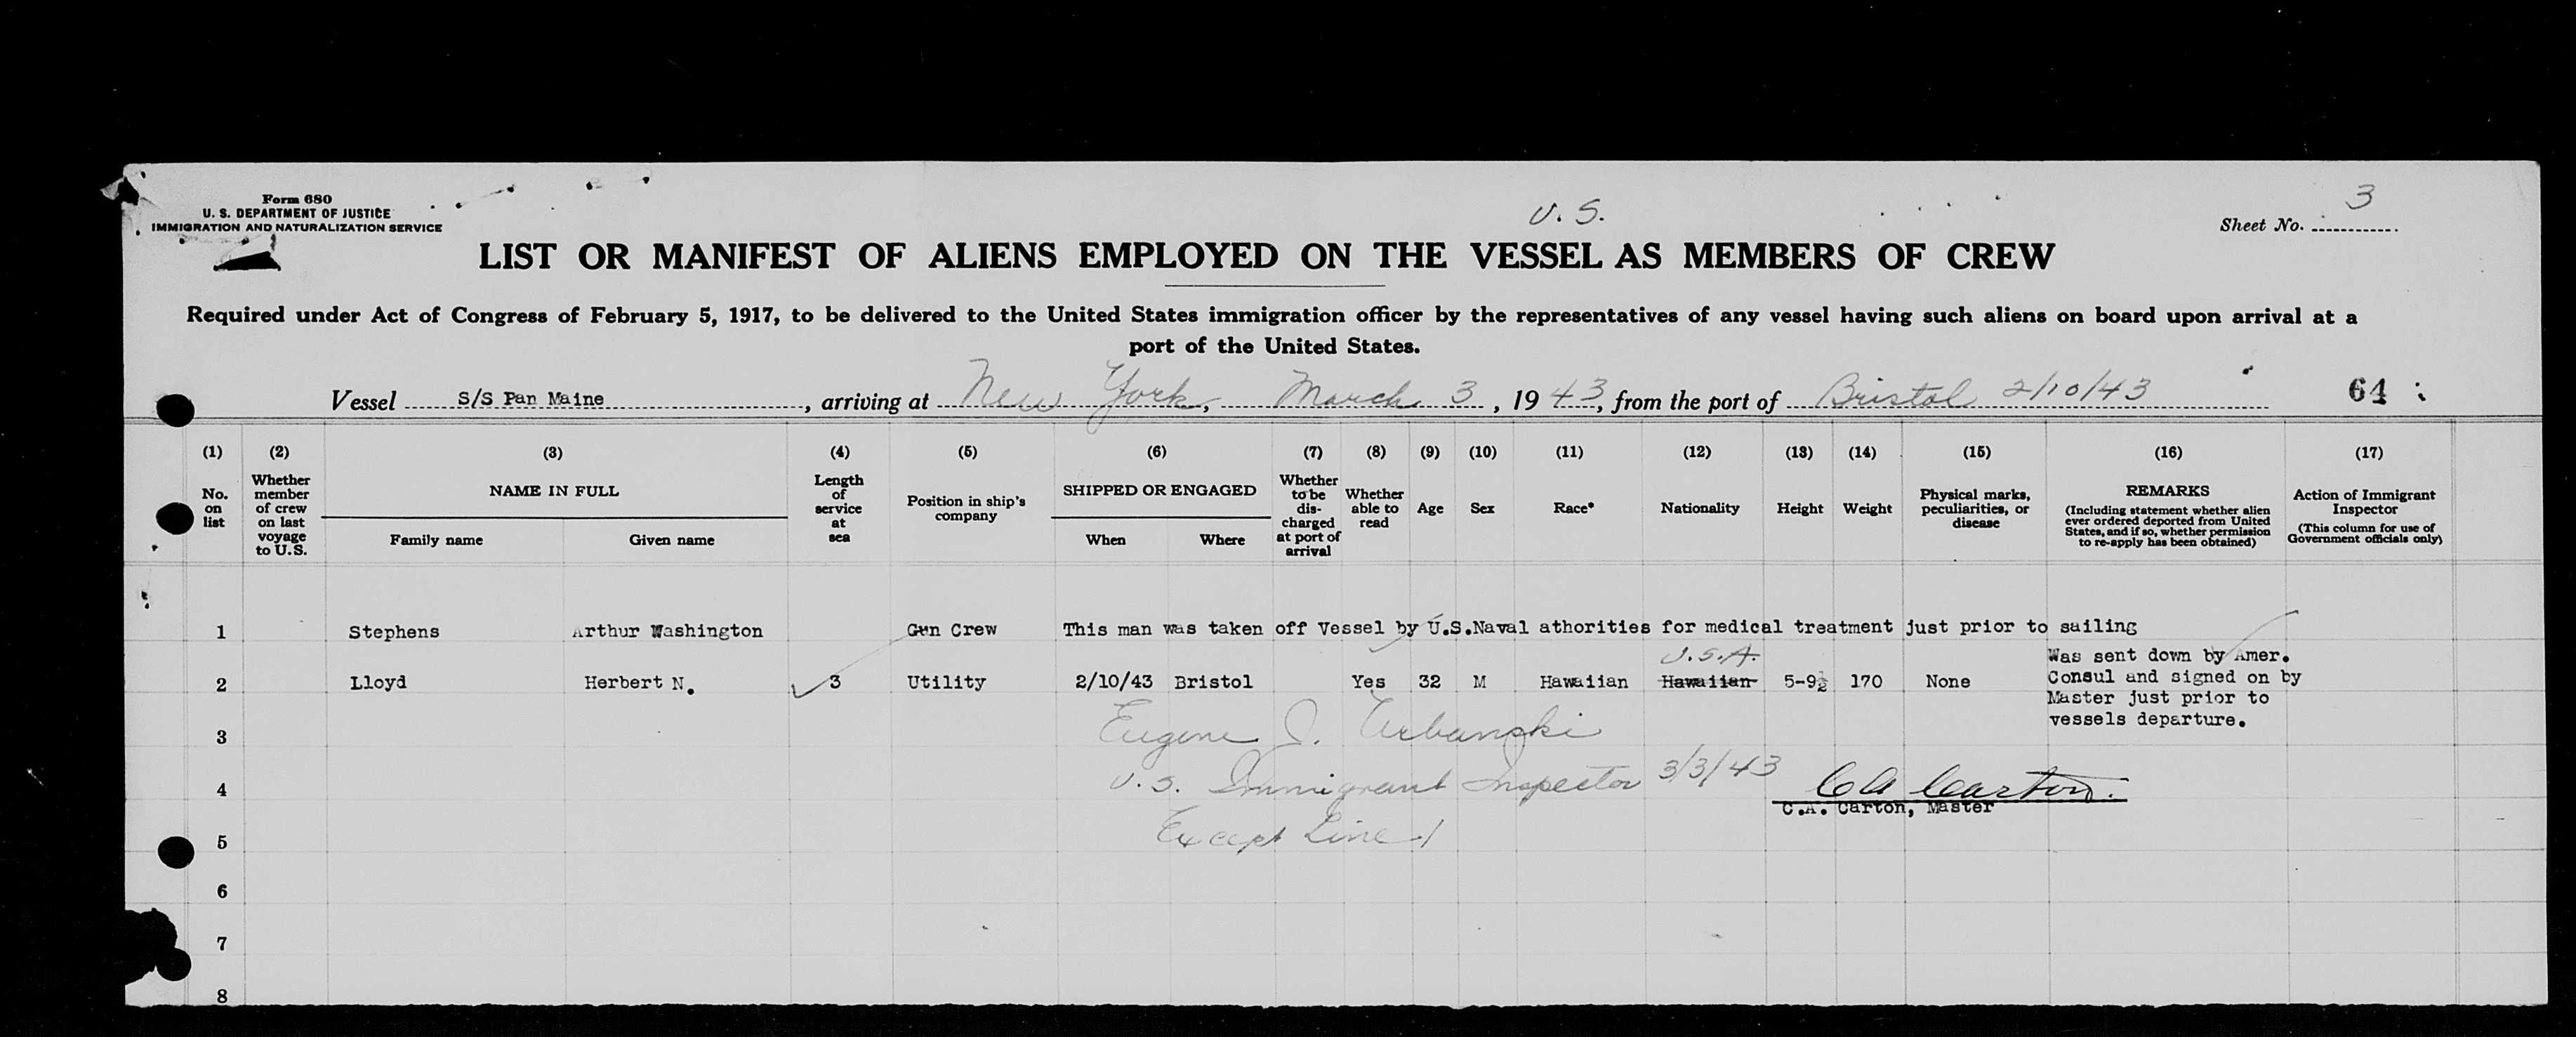 Form 680
U. S. DEPARTMENT OF JUSTICE
IMMIGRATION AND NATURALIZATION SERVICE
U. S.
Sheet No. 3
LIST OR MANIFEST OF ALIENS EMPLOYED ON THE VESSEL AS MEMBERS OF CREW
Required under Act of Congress of February 5, 1917, to be delivered to the United States immigration officer by the representatives of any vessel having such aliens on board upon arrival at a
port of the United States.
Vessel S/S Pan Maine, arriving at New York, March 3, 1943, from the port of Bristol 2/10/43 64
(1) (2) (3) (4) (5) (6) (7) (8) (9) (10) (11) (12) (13) (14) (15) (16) (17)
No. on list
Whether member of crew on last voyage to U.S.
NAME IN FULL
Family name Given name
Length of service at sea
Position in ship's company
SHIPPED OR ENGAGED
When Where
Whether to be discharged at port of arrival
Whether able to read
Age
Sex
Race*
Nationality
Height
Weight
Physical marks, peculiarities, or disease
REMARKS
(Including statement whether alien ever ordered deported from United States, and if so, whether permission to re-apply has been obtained)
Action of Immigrant Inspector
(This column for use of Government officials only)
1 Stephens Arthur Washington Gun Crew This man was taken off Vessel by U.S.Naval athorities for medical treatment just prior to sailing
U.S.A.
2 Lloyd Herbert N. 3 Utility 2/10/43 Bristol Yes 32 M Hawaiian Hawaiian 5-9½ 170 None
Was sent down by Amer.
Consul and signed on by
Master just prior to
vessels departure.
3 Eugene J. Urbanski
4 U.S. Immigrant Inspector 3/3/43 CA Carton.
C.A. Carton, Master
5 Except Line 1
6
7
8